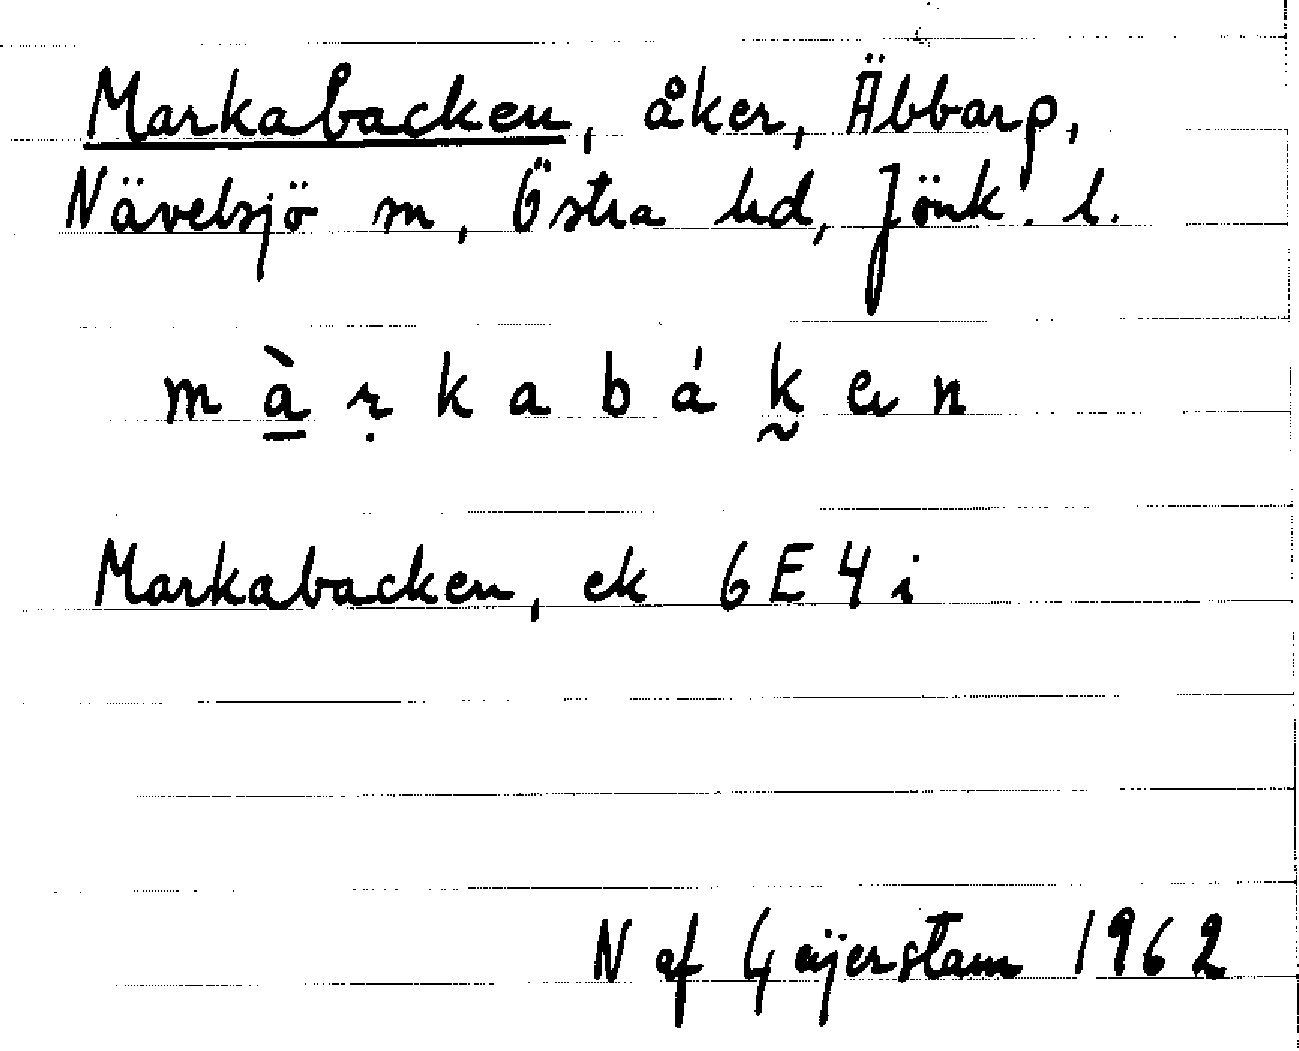 Markabacken, åker, Äbbarp,
Nävelsjö sn, Östra hd, Jönk. l.
m à̱ ṛ k a b á k̰ e n
Markabacken, ek 6E4i
N af Geijerstam 1962